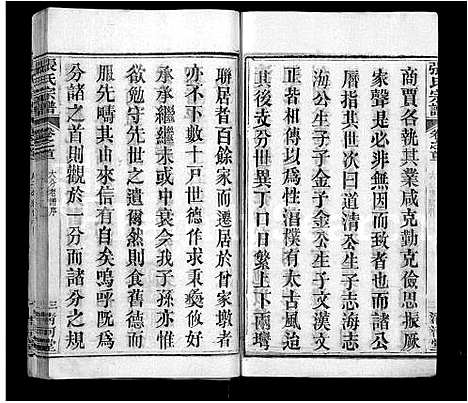 張氏宗譜
商賈各執其業咸克勤克儉思振厥
家聲是必非無因而致也而諸公
曆指之又曰道清公生子志海志
海公生子子金子金公生子文漢文
其後支分世異丁口日繁上下兩灣
人煙稠密性情樸有太古風迨
聯居者百餘家而遷居於曾家墩者
亦不下數十戸世德作求秉彝攸好
承承繼繼未或中衰今我子孫亦惟
欲勉守先世之遺爾然則食舊德而
服先疇其由來信有自矣嗚呼既爲
分諸之首則觀於一分而諸分之規
張氏宗譜
卷之首
三
清河堂